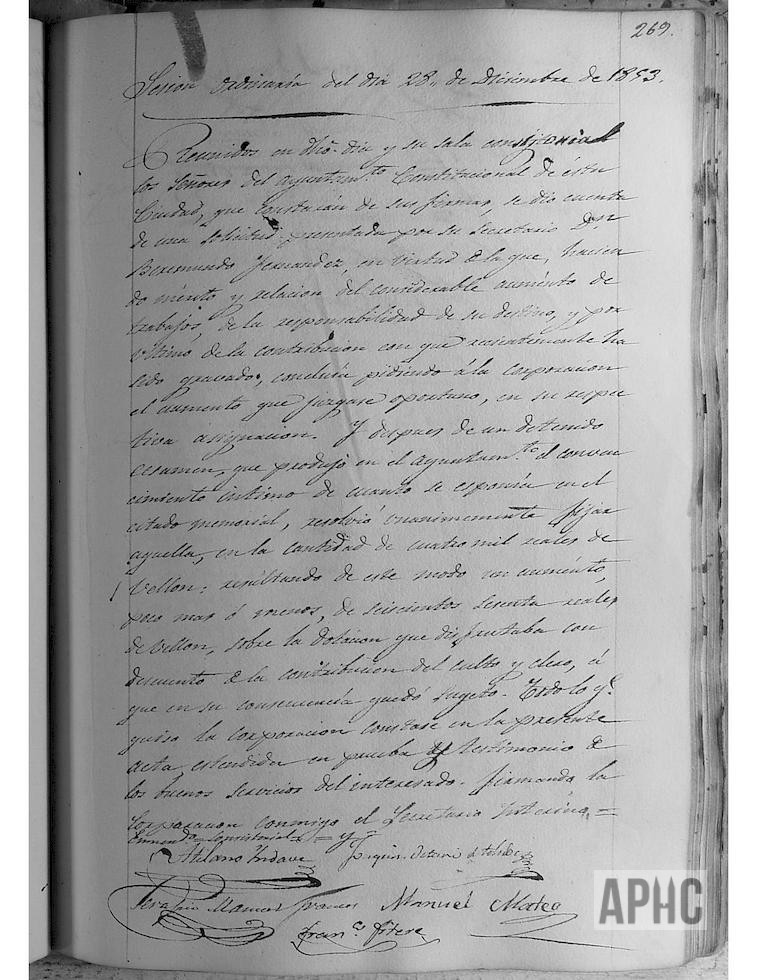 269.
Sesion ordinaria del dia 28,, de Diciembre de 1853.
Reunidos en dho. dia y su sala consistorial
los Señores del Ayuntam.to Constitucional de ésta
Ciudad, que constarán de sus firmas, se dio cuenta
de una solicitud presentada por su Secretario D.n
Beremundo Fernandez, en virtud de la que, hacien
do mérito y relacion del considerable aumento de
trabajos, de la responsabilidad de su destino, y por
último de la contribucion con que recientemente ha
sido gravado, concluía pidiendo á la corporacion
el aumento que juzgare oportuno, en su respec
tiva asignacion. Y despues de un detenido
ecsamen, que produjo en el Ayuntam.to el conven
cimiento íntimo de cuanto se esponía en el
citado memorial, resolvió unanimemente fijar
aquella, en la cantidad de cuatro mil reales de
Vellon; resultando de este modo un aumento,
poco mas ó menos, de seiscientos sesenta reales
de Vellon, sobre la dotacion que disfrutaba con
descuento de la contribucion del culto y clero, á
que en su consecuencia quedó sugeto. Todo lo q.e
quiso la corporacion constase en la presente
acta, estendida en prueba y testimonio de
los buenos servicios del interesado. firmando la
corporacion conmigo el Secretario interino. =
Enmendo = consistorial = y =
Manuel Mateo
Serafin Manuel
Fran.co Fitero
APHC